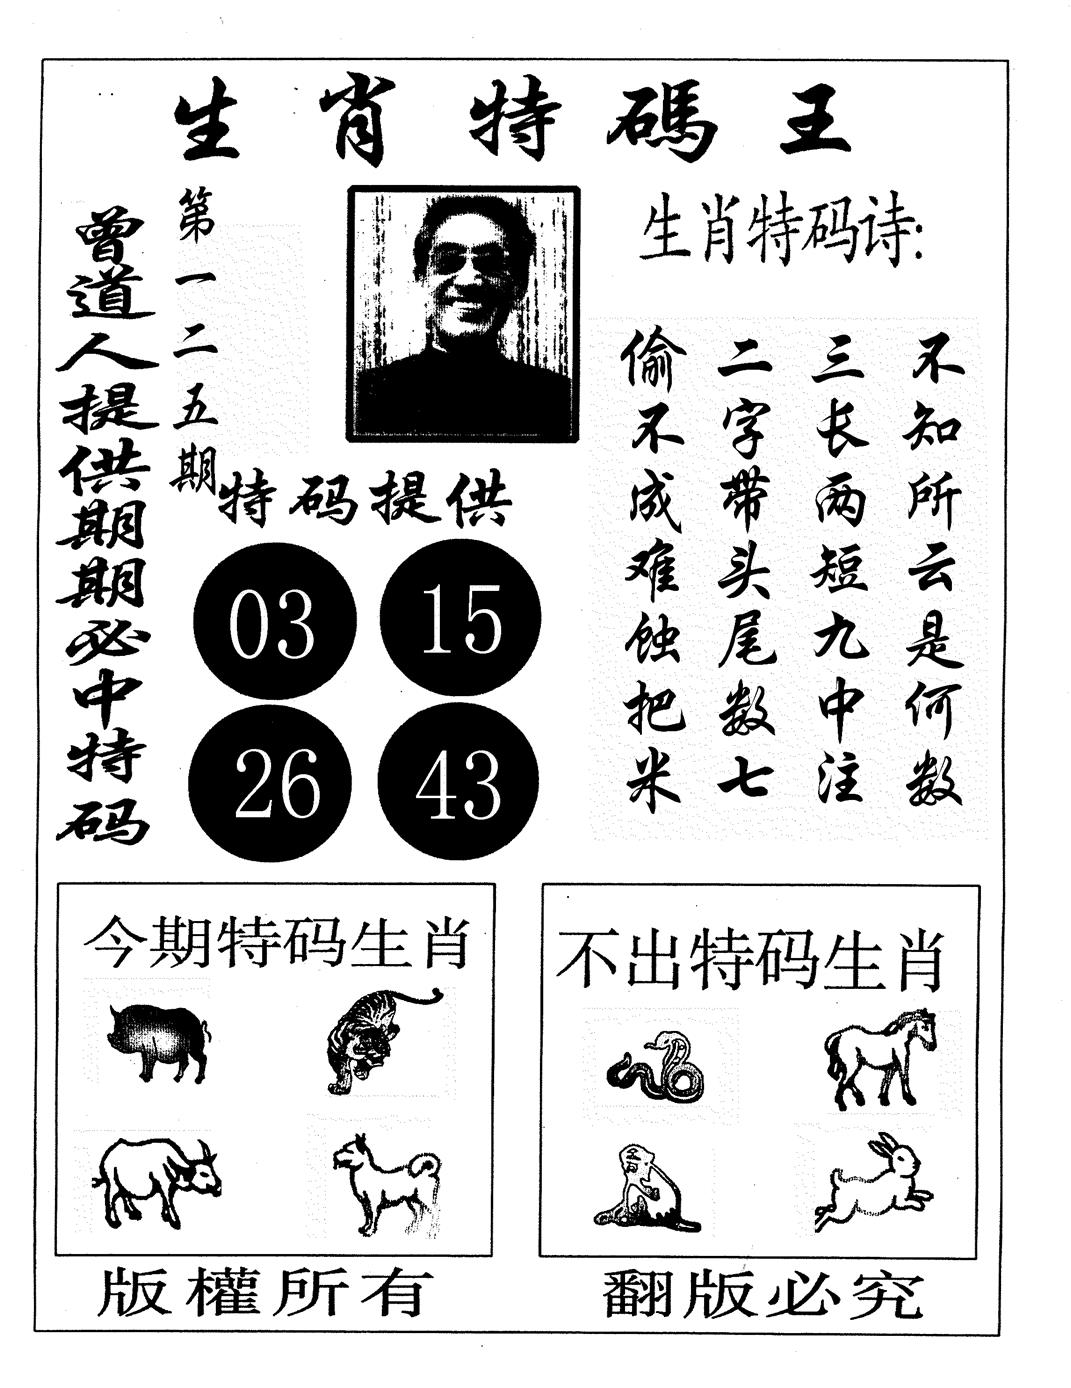 生肖特碼王
曾道人提供期期必中特码
第一二五期
生肖特码诗:
不知所云是何数
三长两短九中注
二字带头尾数七
偷不成难蚀把米
特码提供
03 15
26 43
今期特码生肖
不出特码生肖
版權所有
翻版必究